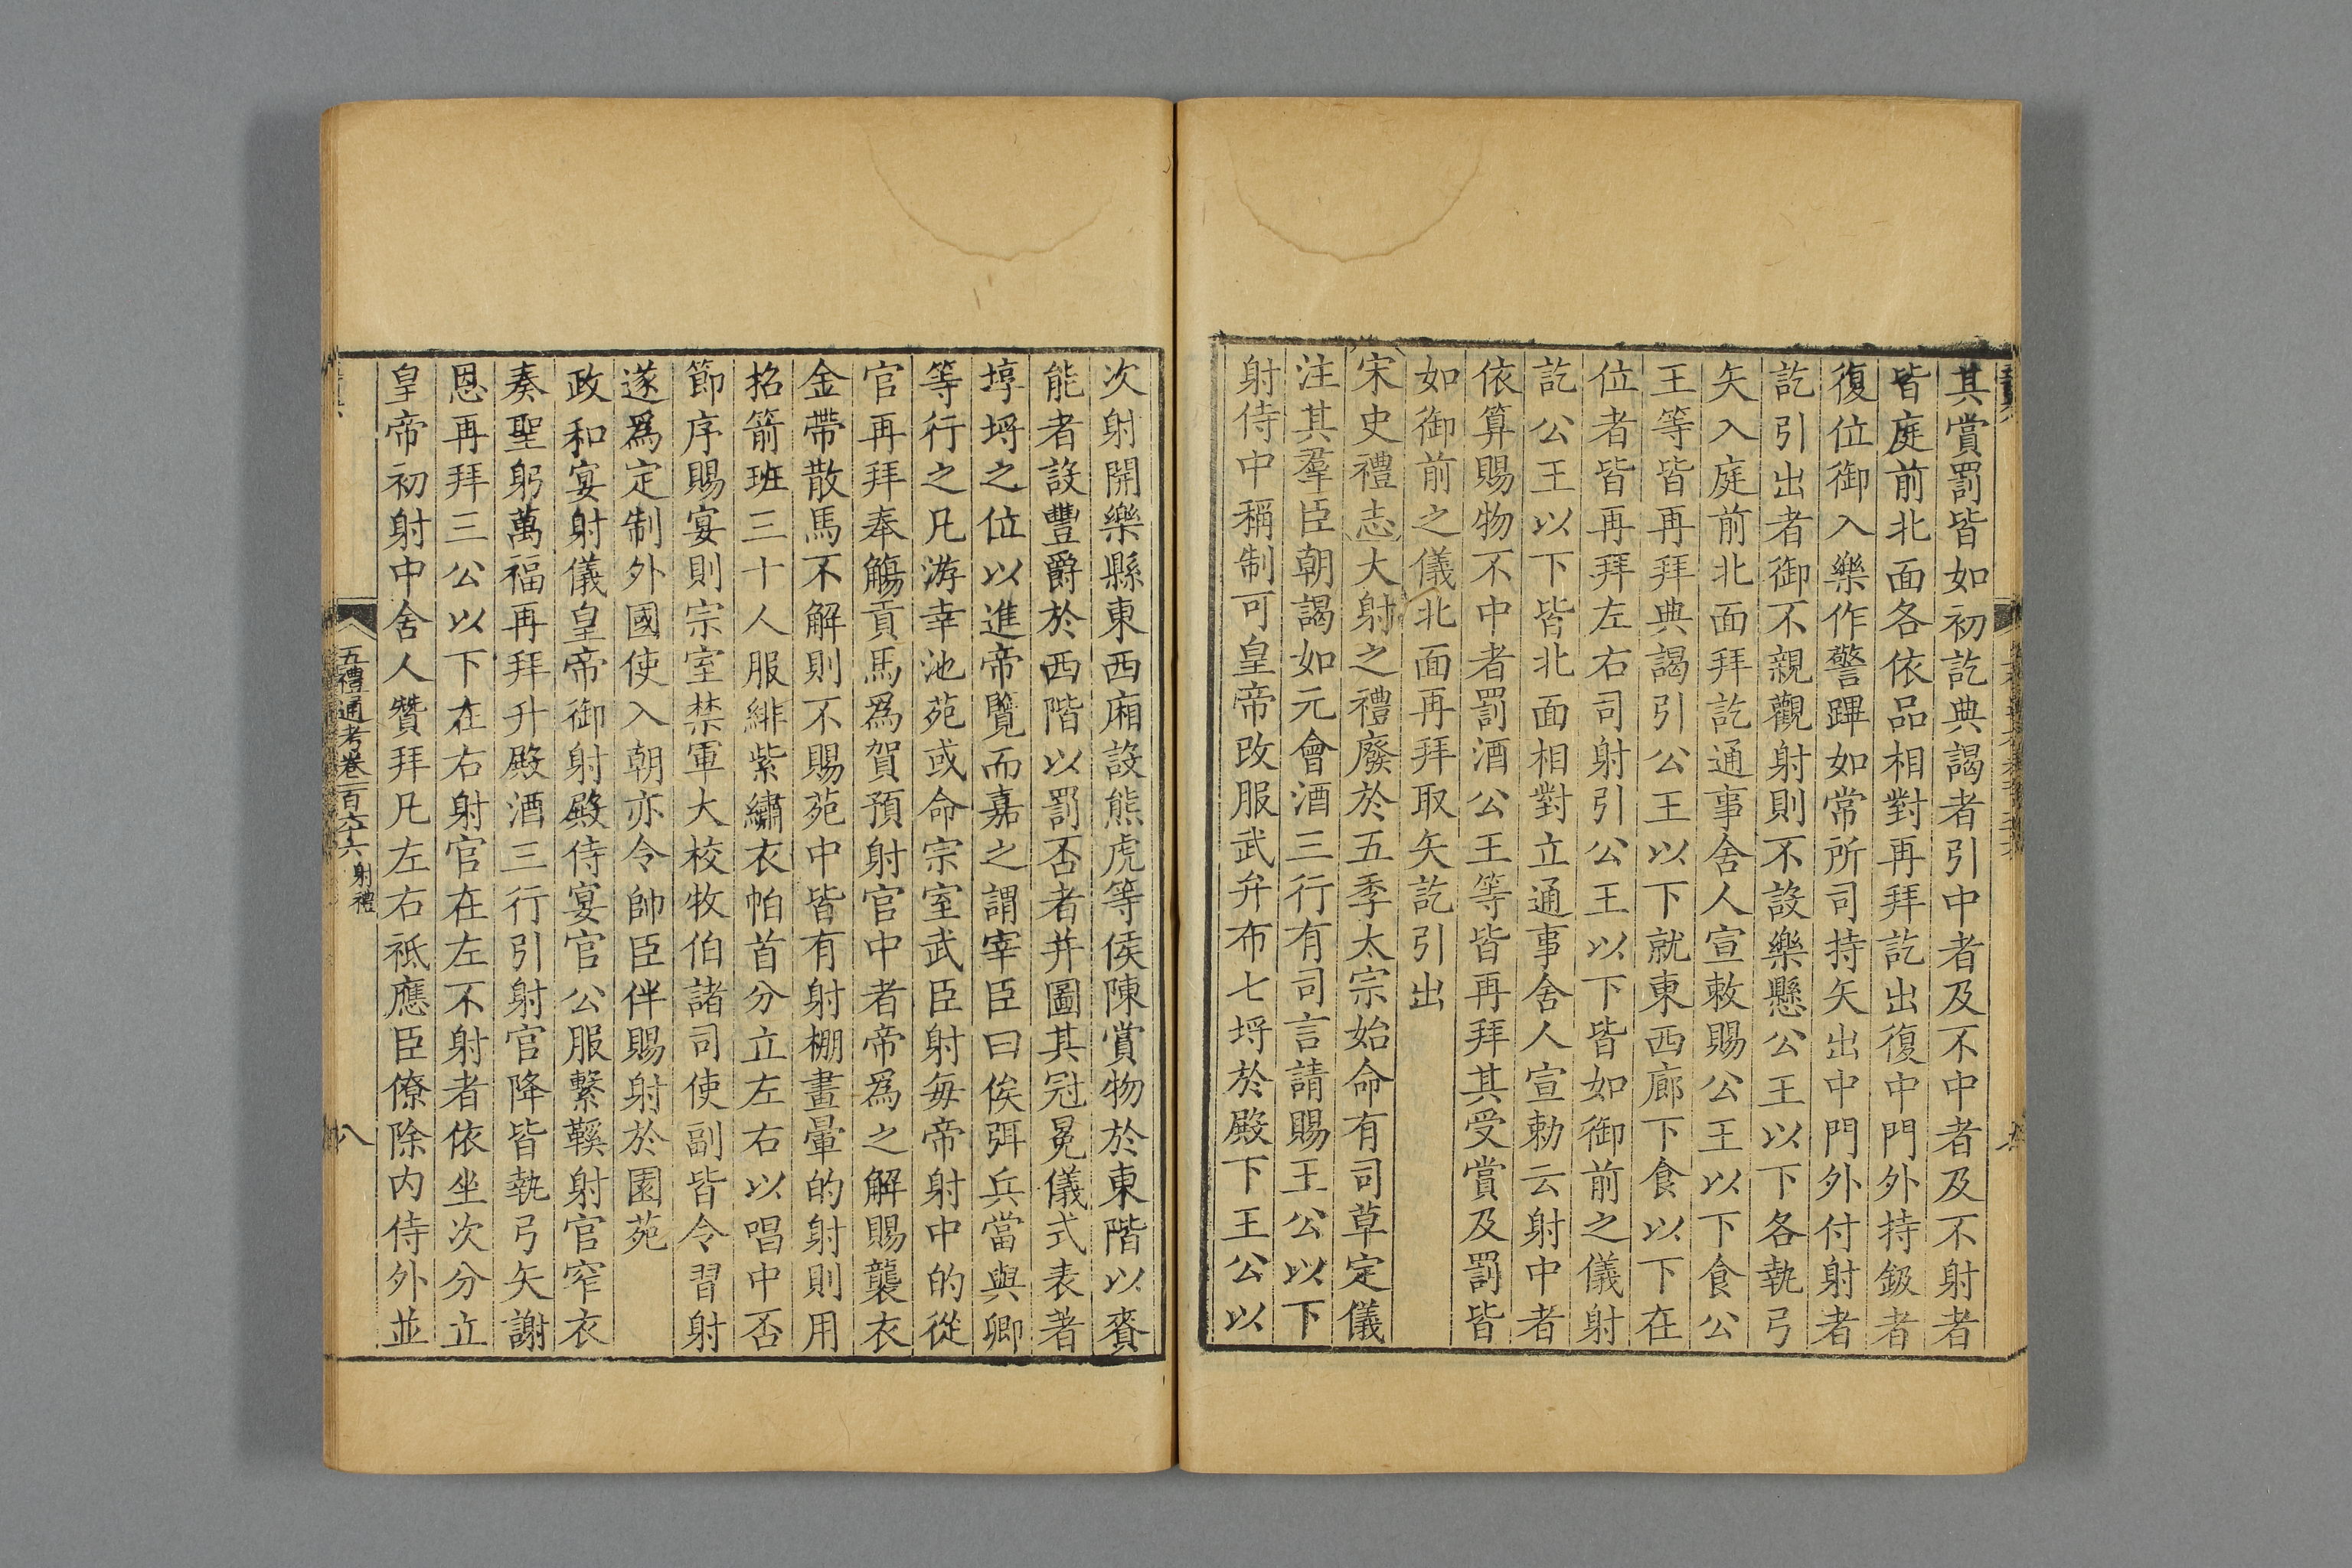 其賞罰皆如初訖典謁者引中者及不中者及不射者
皆庭前北面各依品相對再拜訖出復中門外持鈒者
復位御入樂作警蹕如常所司持矢出中門外付射者
訖引出者御不親觀射則不設樂懸公王以下各執弓
矢入庭前北面拜訖通事舍人宣敕賜公王以下食公
王等皆再拜典謁引公王以下就東西廊下食以下在
位者皆再拜左右司射引公王以下皆如御前之儀射
訖公王以下皆北面相對立通事舍人宣勅云射中者
依算賜物不中者罰酒公王等皆再拜其受賞及罰皆
如御前之儀北面再拜取矢訖引出
宋史禮志大射之禮廢於五季太宗始命有司草定儀
注其羣臣朝謁如元會酒三行有司言請賜王公以下
射侍中稱制可皇帝改服武弁布七埒於殿下王公以
次射開樂縣東西廂設熊虎等侯陳賞物於東階以賚
能者設豐爵於西階以罰否者并圖其冠冕儀式表著
埻埒之位以進帝覽而嘉之謂宰臣曰俟弭兵當與卿
等行之凡游幸池苑或命宗室武臣射每帝射中的從
官再拜奉觴貢馬爲賀預射官中者帝爲之解賜襲衣
金帶散馬不解則不賜苑中皆有射棚畫暈的射則用
招箭班三十人服緋紫繡衣帕首分立左右以唱中否
節序賜宴則宗室禁軍大校牧伯諸司使副皆令習射
遂爲定制外國使入朝亦令帥臣伴賜射於園苑
政和宴射儀皇帝御射殿侍宴官公服繫鞵射官窄衣
奏聖躬萬福再拜升殿酒三行引射官降皆執弓矢謝
恩再拜三公以下在右射官在左不射者依坐次分立
皇帝初射中舍人贊拜凡左右祗應臣僚除内侍外並
五禮通考卷一百六十六 射禮 八